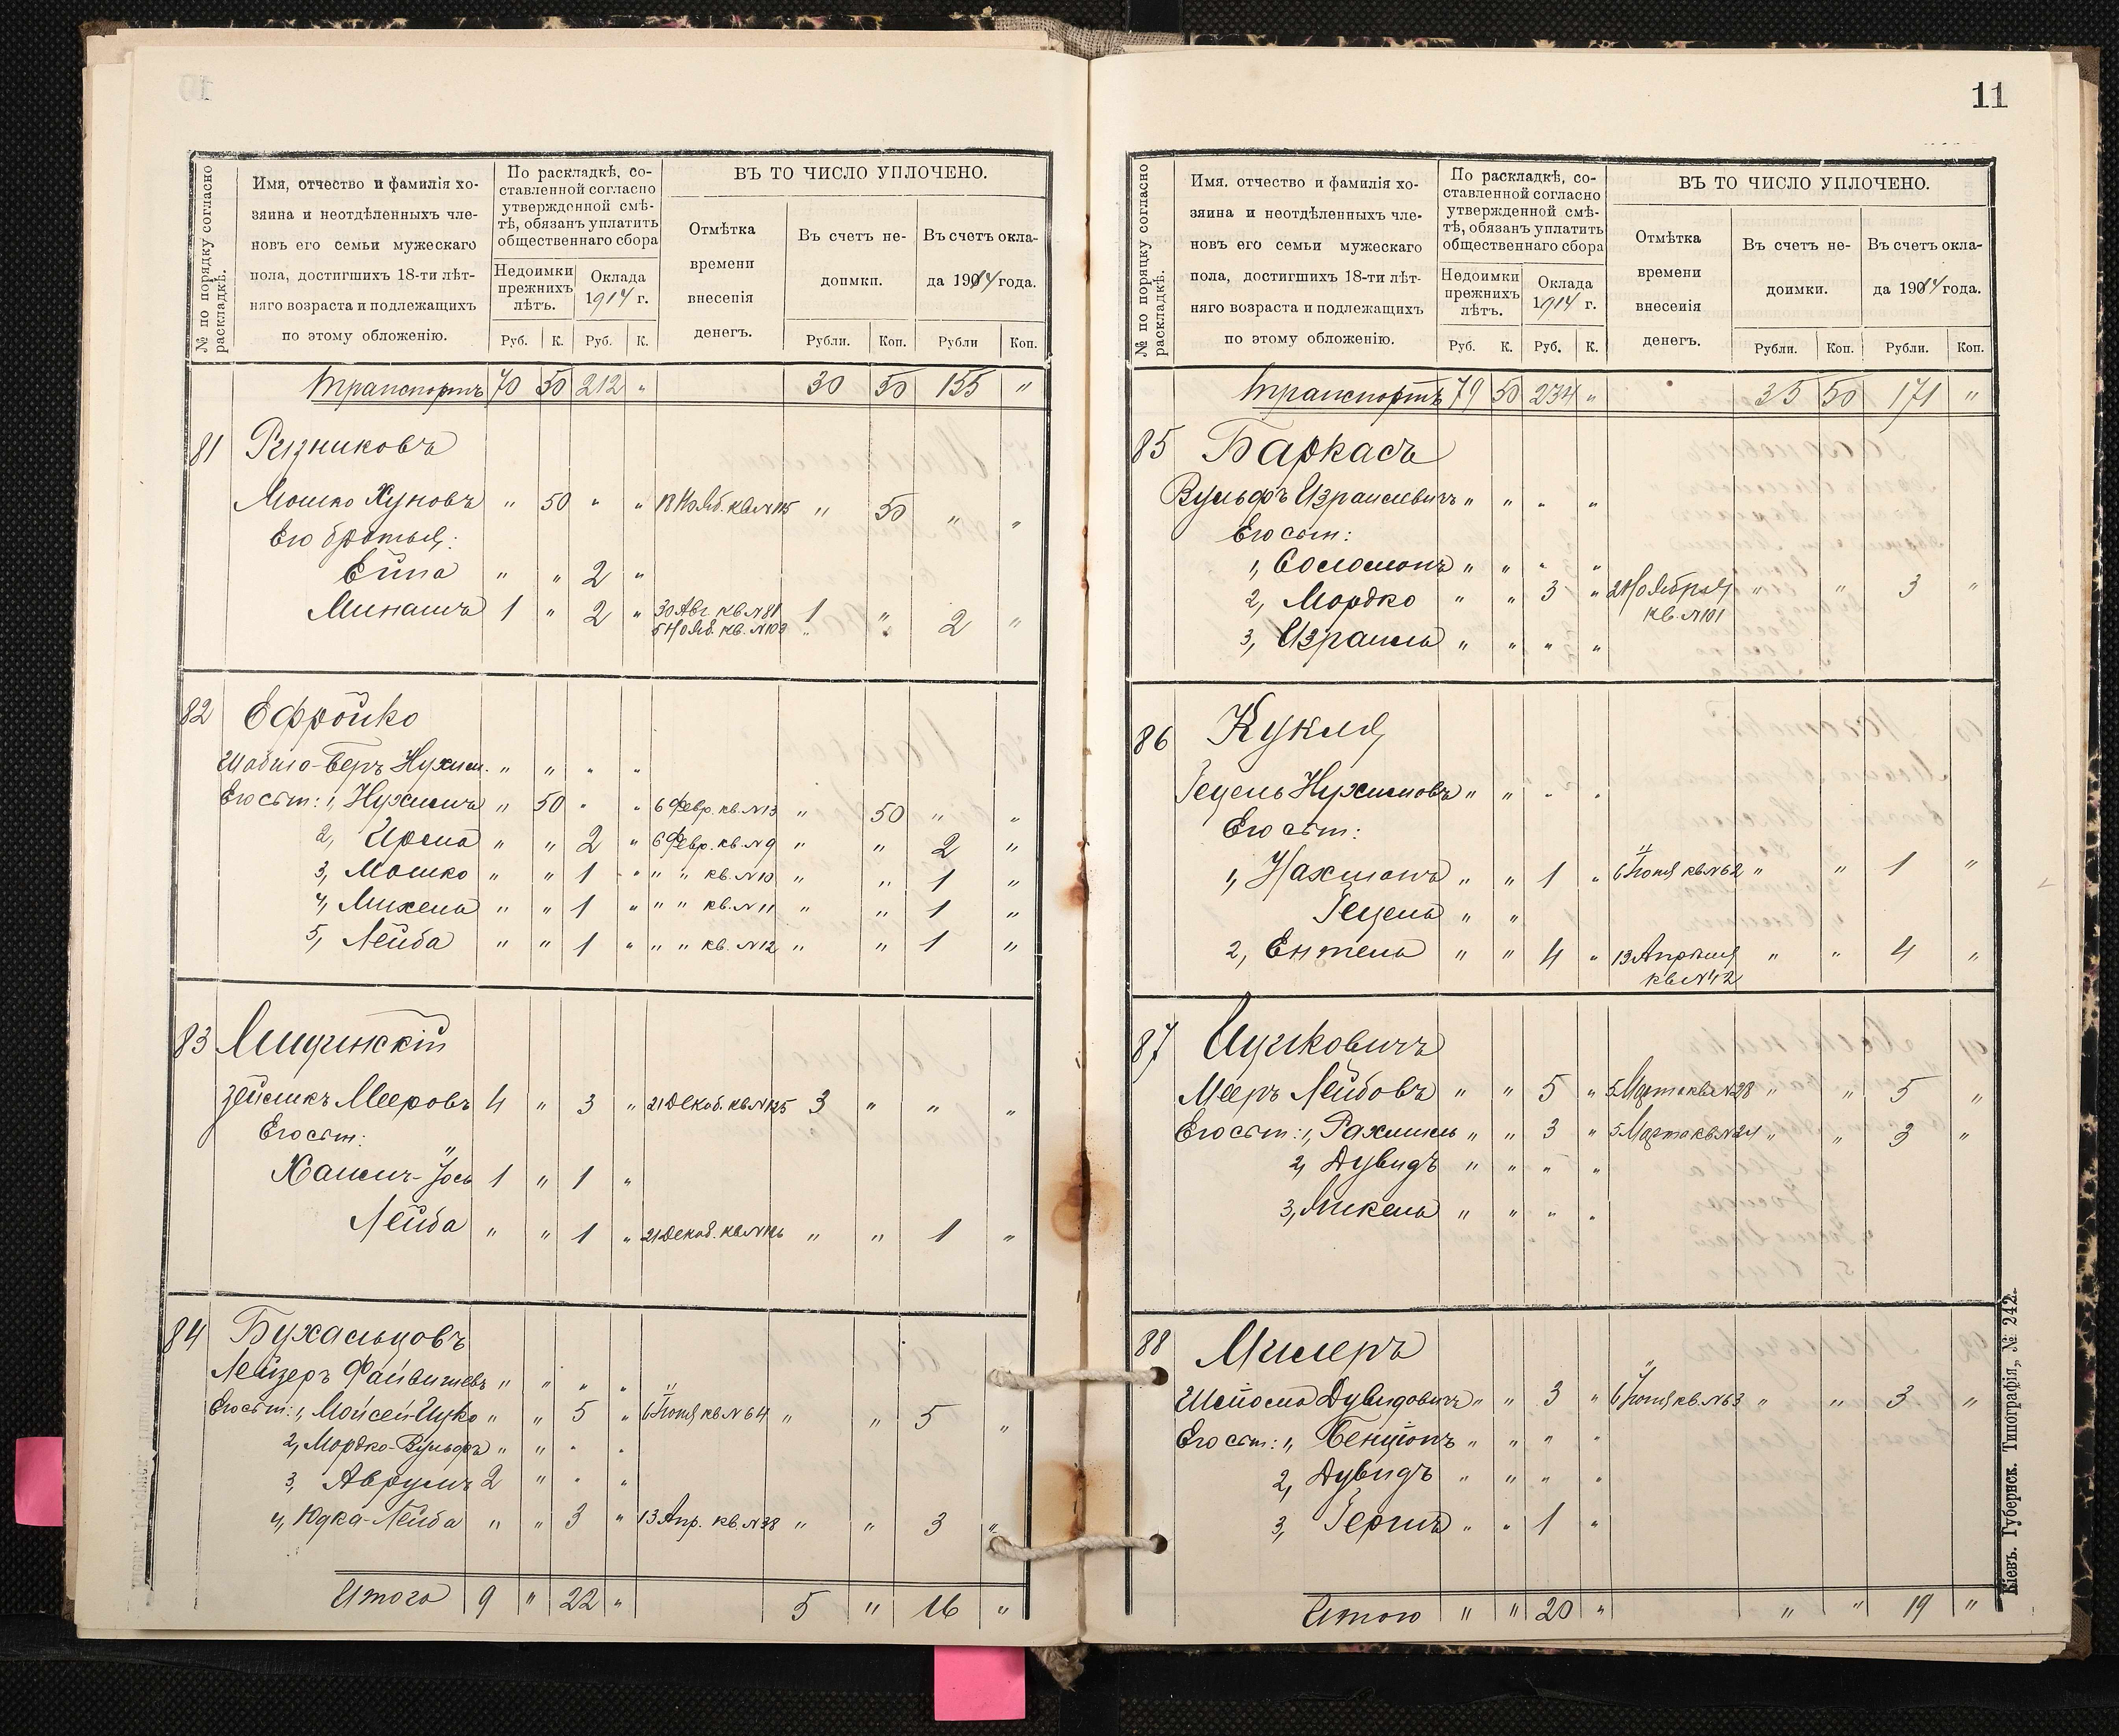 № по порядку согласно раскладкѣ.
Имя, отчество и фамилія хо-
зяина и неотдѣленныхъ чле-
новъ его семьи мужескаго
пола, достигшихъ 18-ти лѣт-
няго возраста и подлежащихъ
по этому обложенію.
По раскладкѣ, со-
ставленной согласно
утвержденной смѣ-
тѣ, обязанъ уплатить
общественнаго сбора
Недоимки прежнихъ лѣтъ.
Оклада 1914 г.
Руб. К. Руб. К.
ВЪ ТО ЧИСЛО УПЛОЧЕНО.
Отмѣтка
времени
внесенія
денегъ.
Въ счетъ не-
доимки.
Въ счетъ окла-
да 1914 года.
Рубли. Коп. Рубли Коп.
Транспортъ 70 50 212 " 30 50 155 "
81 Рѣзниковъ
Мошко Хуновъ " 50 " " 18 Нояб. кв. №115 " 50 " "
Его братья:
Ейна " " 2 "
Минашъ 1 " 2 " 30 Авг. кв. №81 1 " 2 "
5 Нояб. кв. №103 " "
82 Ефройко
Шабша-Беръ Нухим. " " " "
Его сын: 1, Нухимъ " 50 " " 6 Февр. кв. №13 " 50 " "
2, Ирма " " 2 " 6 Февр. кв. №9 " " 2 "
3, Мошко " " 1 " " " кв. №10 " " 1 "
4, Михель " " 1 " " " кв. №11 " " 1 "
5, Лейба " " 1 " " " кв. №12 " " 1 "
83 Лещинскій
Зейликъ Мееровъ 4 " 3 " 21 Декаб. кв. №125 3 " " "
Его сын:
Хаимъ-Іось 1 " 1 "
Лейба " " 1 " 21 Декаб. кв. №126 " " 1 "
84 Бухальцовъ
Лейзеръ Файвишевъ " " " "
Его сын: 1, Мойсей-Ицко " " 5 " 6 Іюня кв. №64 " " 5 "
2, Мордко-Вульфъ " " " "
3, Аврумъ 2 " " "
4, Юдка-Лейба " " 3 " 13 Апр. кв. №38 " " 3 "
Итого 9 " 22 " 5 " 16 "
11
№ по поряцку согласно раскладкѣ.
Имя. отчество и фамилія хо-
зяина и неотдѣленныхъ чле-
новъ его семьи мужескаго
пола, достигшихъ 18-ти лѣт-
няго возраста и подлежащихъ
по этому обложенію.
По раскладкѣ, со-
ставленной согласно
утвержденной смѣ-
тѣ, обязанъ уплатить
общественнаго сбора
Недоимки прежнихъ лѣтъ.
Оклада 1914 г.
Руб. К. Руб. К.
ВЪ ТО ЧИСЛО УПЛОЧЕНО.
Отмѣтка
времени
внесенія
денегъ.
Въ счетъ не-
доимки.
Въ счетъ окла-
да 1914 года.
Рубли. Коп. Рубли. Коп.
Транспортъ 79 50 234 " 35 50 171 "
85 Баркасъ
Вульфъ Израилевичъ " " " "
Его сын:
1, Соломонъ " " " "
2, Мордко " " 3 " 2 Ноября " " 3 "
кв. №101
3, Израиль " " " "
86 Кукля
Гецель Нухимовъ " " " "
Его сын:
1, Нахманъ " " 1 " 6 Іюня кв. №62 " " 1 "
Гецель " "
2, Ентель " " 4 " 13 Апрѣля " " 4 "
кв. №42
87 Ицковичъ
Мееръ Лейбовъ " " 5 " 5 Марта кв. №28 " " 5 "
Его сын: 1, Рахмиль " " 3 " 5 Марта кв. №24 " " 3 "
2, Дувидъ " " " "
3, Микель " " " "
88 Милеръ
Шліома Дувидовичъ " " 3 " 6 Іюня кв. №63 " " 3 "
Его сын: 1, Бенціонъ " " " "
2, Дувидъ " " " "
3, Гершъ " " 1 "
Итого " " 20 " " " 19 "
Кіевъ. Губернск. Типографія, № 242.